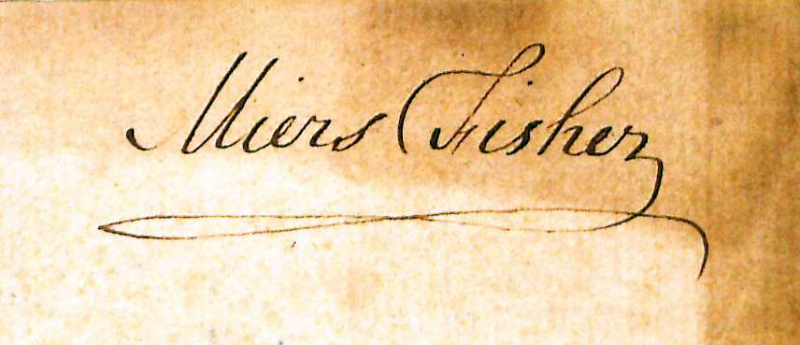 Miers Fisher